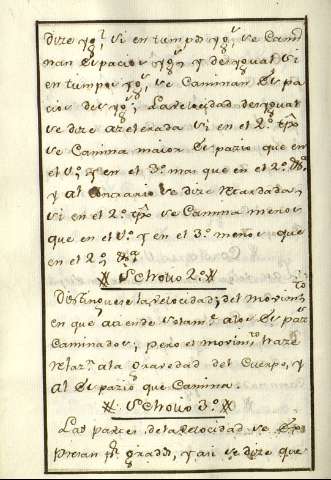 dize ygl, si en tiempos ygs, se Cami
nan Espacios ygs, y desygual si
en tiempos ygs, se Caminan Espa
cios desygs, La velocidad desygual
se dize azelerada si en el 2º tpo
se Camina maior Espazio que en
el 1º, y en el 3º mas que en el 2º &ª
y al Contrario se dize Retardada,
si en el 2º tpo se Camina menos
que en el 1º y en el 3º menos que
en el 2º, &ª
Scholio 2º
Distinguese la velocidad, del movimto
en que aciende solamte a los Espazos
Caminados; pero el movimto haze
Relazn a la gravedad del Cuerpo, y
al Espazio que Camina.
Scholio 3º
Las partes de la velocidad se Ex
presan pr grados, y asi se dize que